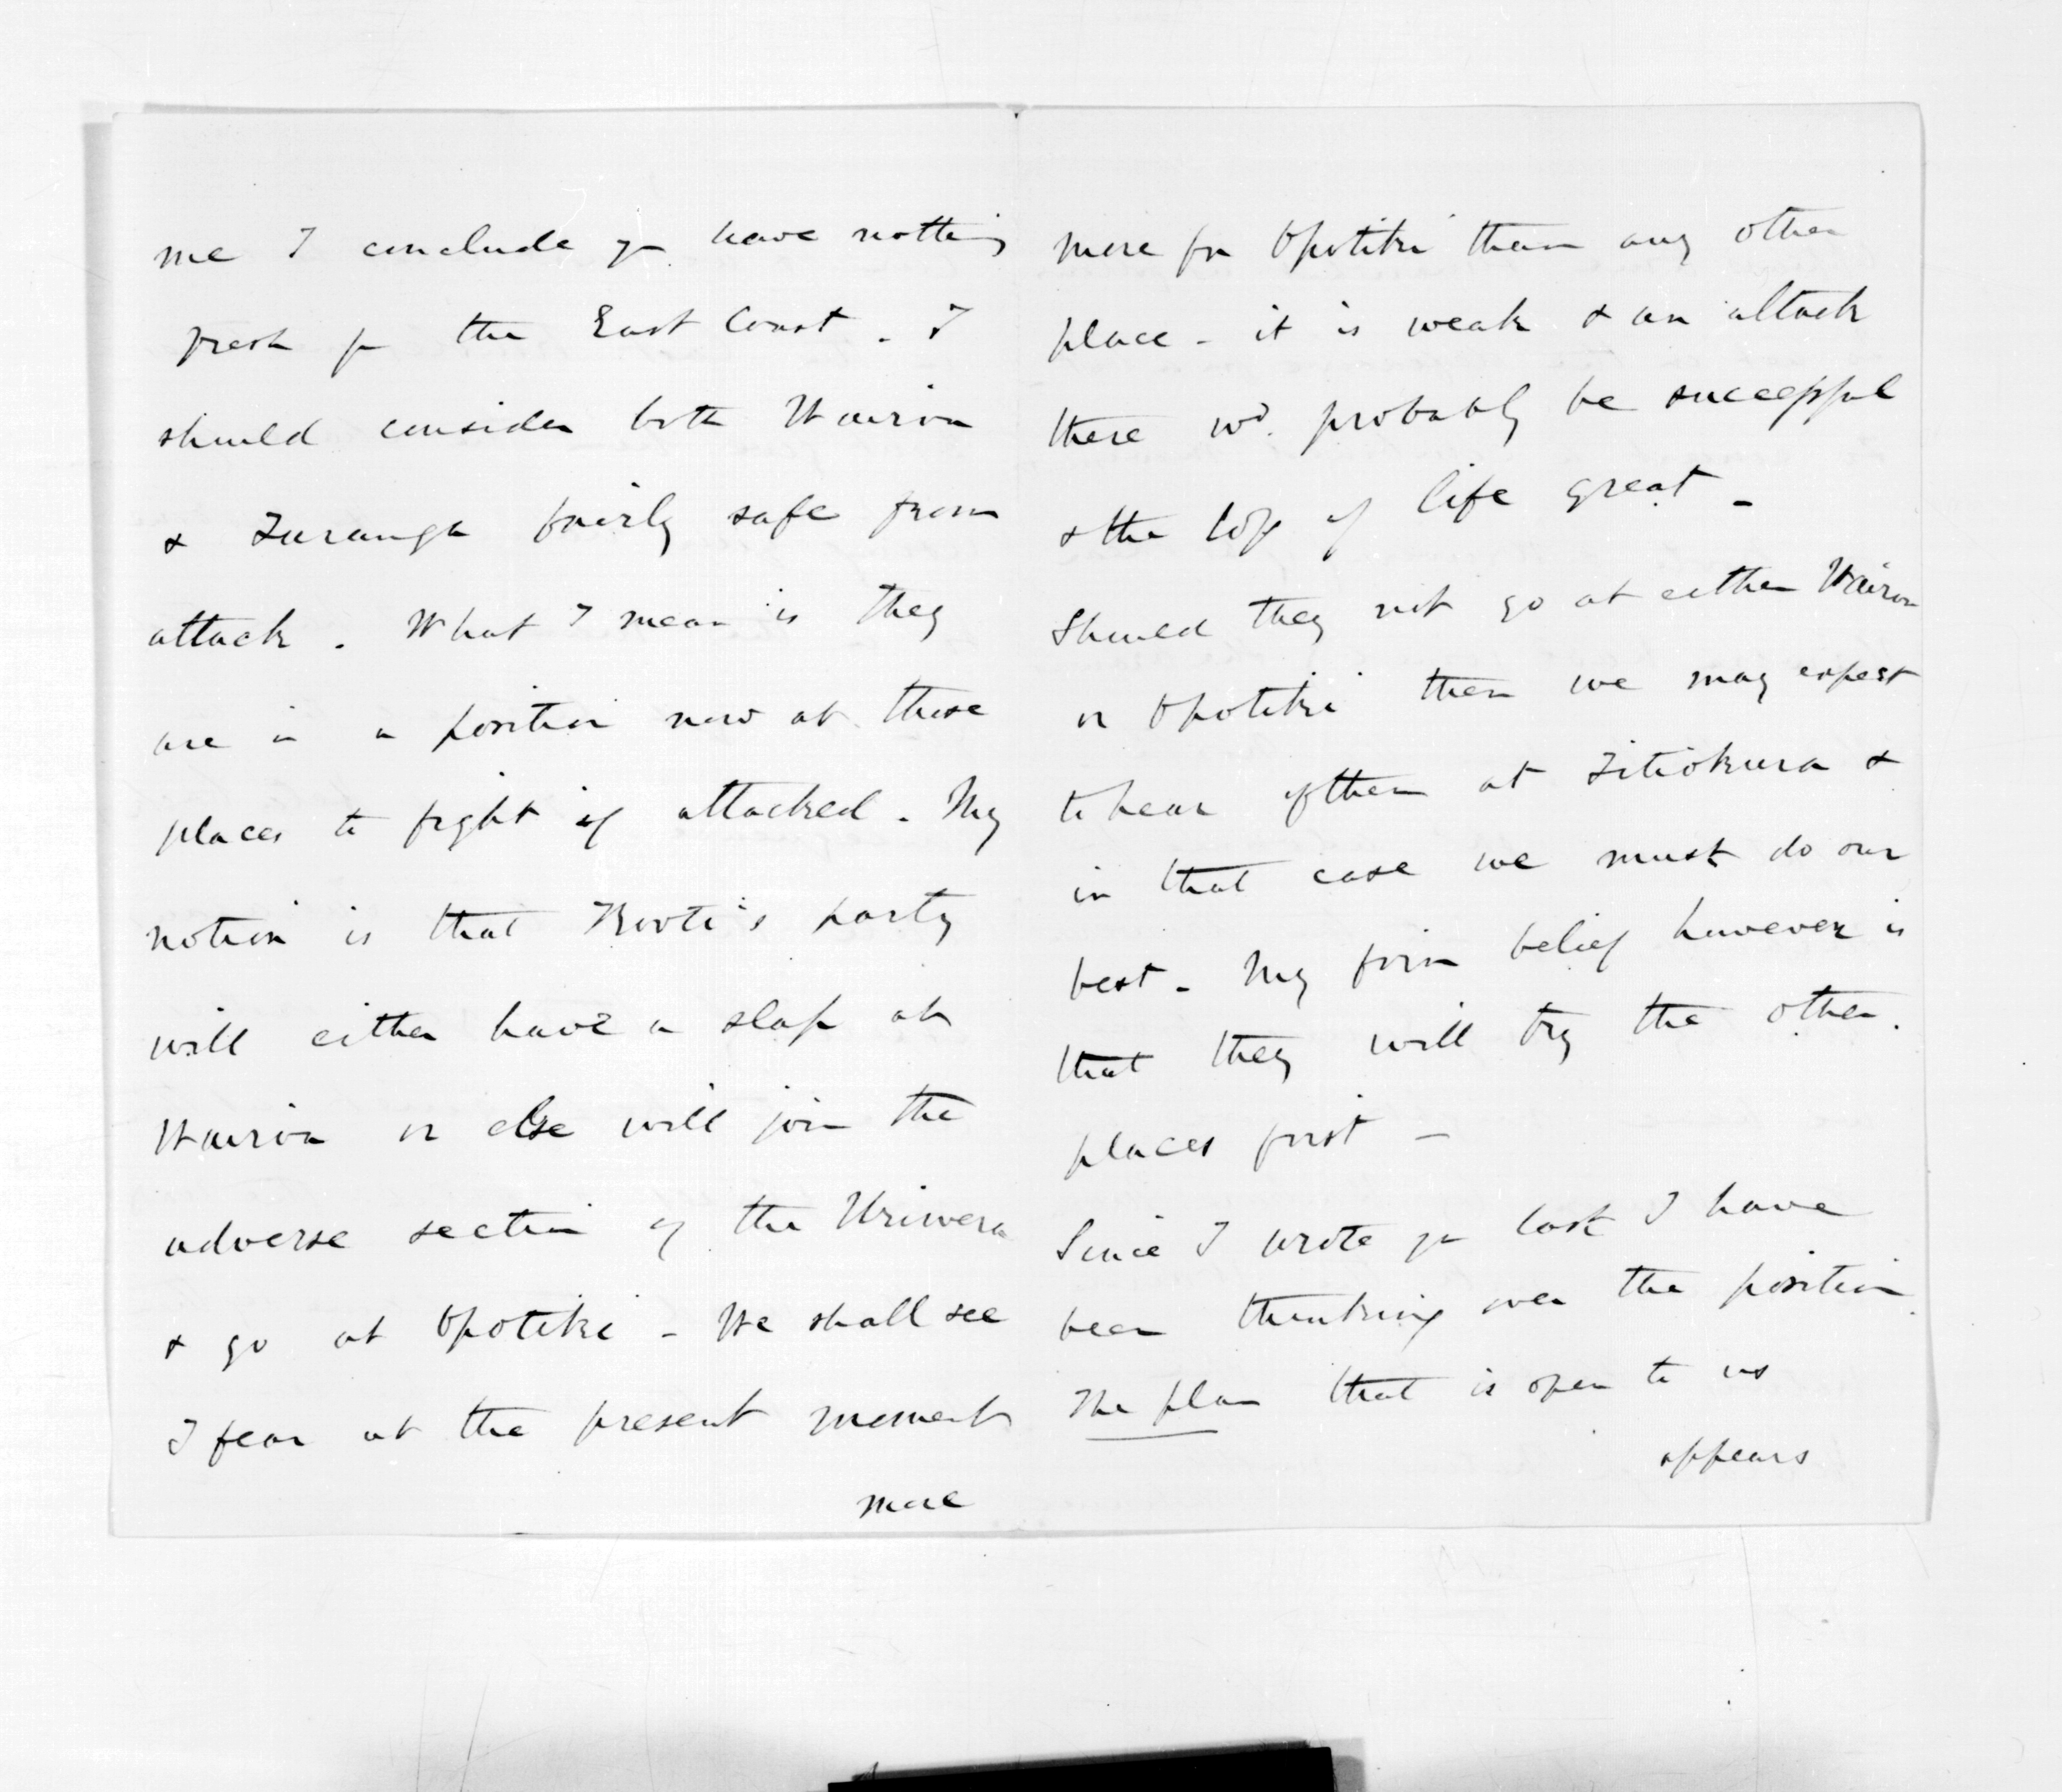 me I conclude yr have nothing
fresh fr the East Coast. I
should consider both Wairoa
& Turanga fairly safe from
attack. What I mean is they
are in a position now at those
places to fight if attacked. My
notion is that Kooti's party
will either have a slap at
Wairoa or else will join the
adverse section of the Uriwera
& go at Opotiki - We shall see
I fear at the present moment
more
more for Opotiki than any other
place - it is weak & an attack
there wd. probably be successful
& the loss of life great -
Should they not go at either Wairoa
or Opotiki then we may expect
to hear of them at Titiokura &
in that case we must do our
best - My firm belief however is
that they will try the other.
places first -
Since I wrote yr last I have
been thinking over the position.
The plan that is open to us
appears